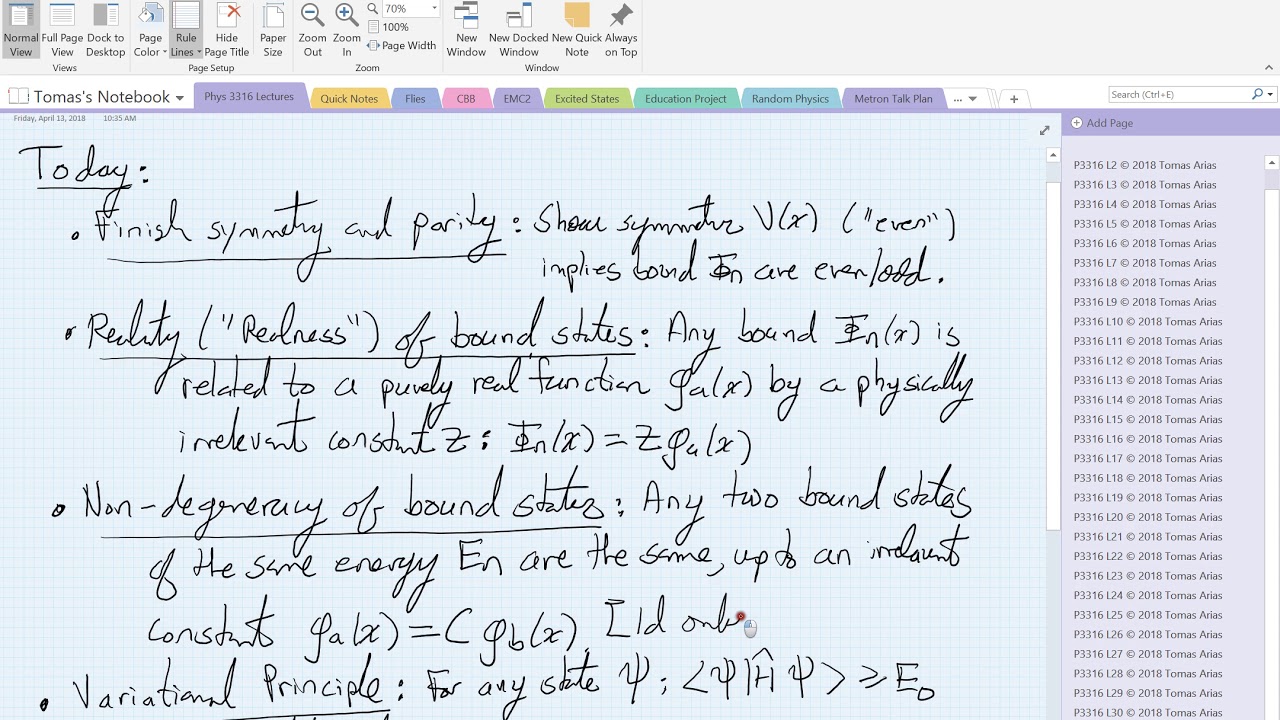 Normal View
Full Page View
Dock to Desktop
Views
Page Color
Rule Lines
Hide Page Title
Paper Size
Page Setup
Zoom Out
Zoom In
70%
100%
Page Width
Zoom
New Window
New Docked Window
New Quick Note
Always on Top
Window
Tomas's Notebook
Phys 3316 Lectures
Quick Notes
Flies
CBB
EMC2
Excited States
Education Project
Random Physics
Metron Talk Plan
...
Search (Ctrl+E)
Friday, April 13, 2018 10:35 AM
Today:
• Finish symmetry and parity: Show symmetric V(x) ("even")
implies bound Φn are even/odd.
• Reality ("Realness") of bound states: Any bound Φn(x) is
related to a purely real function φa(x) by a physically
irrelevant constant Z: Φn(x) = Zφa(x)
• Non-degeneracy of bound states: Any two bound states
of the same energy En are the same, up to an irrelevant
constant φa(x) = C φb(x). [1d only
• Variational Principle: For any state Ψ: <Ψ|ĤΨ> ≥ E₀
Add Page
P3316 L2 © 2018 Tomas Arias
P3316 L3 © 2018 Tomas Arias
P3316 L4 © 2018 Tomas Arias
P3316 L5 © 2018 Tomas Arias
P3316 L6 © 2018 Tomas Arias
P3316 L7 © 2018 Tomas Arias
P3316 L8 © 2018 Tomas Arias
P3316 L9 © 2018 Tomas Arias
P3316 L10 © 2018 Tomas Arias
P3316 L11 © 2018 Tomas Arias
P3316 L12 © 2018 Tomas Arias
P3316 L13 © 2018 Tomas Arias
P3316 L14 © 2018 Tomas Arias
P3316 L15 © 2018 Tomas Arias
P3316 L16 © 2018 Tomas Arias
P3316 L17 © 2018 Tomas Arias
P3316 L18 © 2018 Tomas Arias
P3316 L19 © 2018 Tomas Arias
P3316 L20 © 2018 Tomas Arias
P3316 L21 © 2018 Tomas Arias
P3316 L22 © 2018 Tomas Arias
P3316 L23 © 2018 Tomas Arias
P3316 L24 © 2018 Tomas Arias
P3316 L25 © 2018 Tomas Arias
P3316 L26 © 2018 Tomas Arias
P3316 L27 © 2018 Tomas Arias
P3316 L28 © 2018 Tomas Arias
P3316 L29 © 2018 Tomas Arias
P3316 L30 © 2018 Tomas Arias